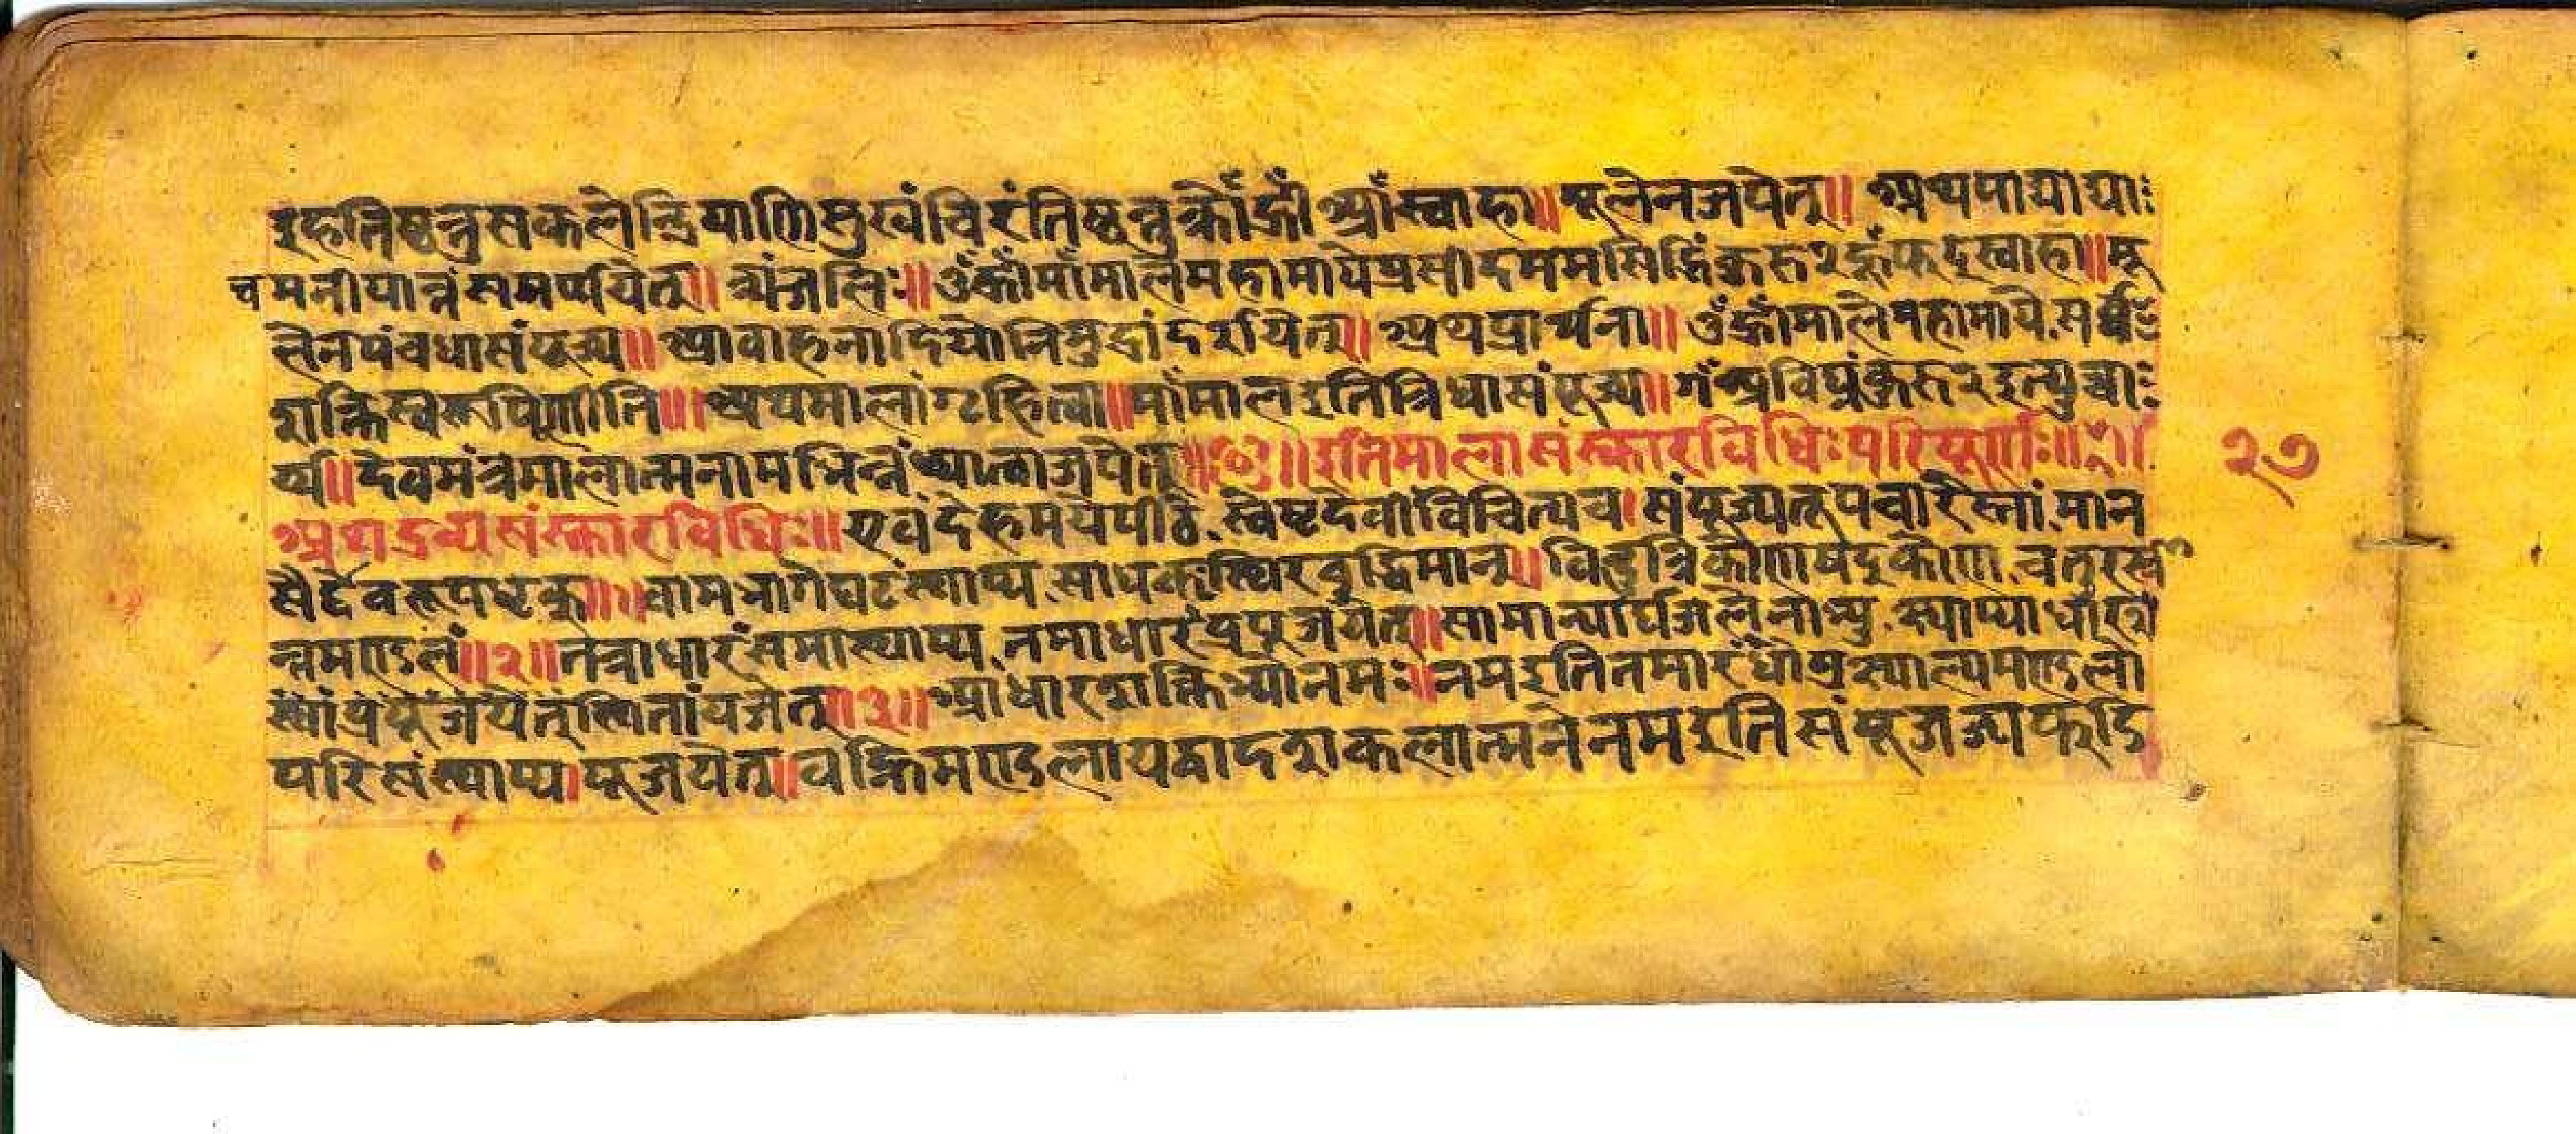 इहतिष्ठन्तुसकलेन्द्रियाणिसुखंचिरंतिष्ठन्तुक्रोँह्रीँआँस्वाहा॥मूलेनजपेत्॥अथपाद्याद्याः
चमनीयान्नंसमर्पयेत्॥ त्र्यंजलिः॥ॐह्रीँमाँमालेमहामायेप्रसीदममसिद्धिंकुरु२हूँफट्स्वाहा॥मू
लेनपंचधासंपूज्य॥आवाहनादियोनिमुद्रांदर्शयेत्॥अथप्रार्थना॥ॐह्रीँमालेमहामाये.सर्व्व
शक्तिस्वरूपिणीति॥अथमालांगृहित्वा॥माँमालइतित्रिधासंपूज्य॥गँअविघ्नंकुरु२इत्युच्चाः
र्य्य॥देवमंत्रमालात्मनामभिन्नंध्यात्वाजपेत्॥इतिमालासंस्कारविधिःपरिपूर्णः॥
अथद्रव्यसंस्कारविधिः॥एवंदेहमयेपीठे.स्वेष्टदेवींविचिंत्यच।संपूज्यतूपचारैस्तां.मान
सैर्द्देवरूपधृक्॥१॥वामभागेघटंस्थाप्य.साधकस्थिरबुद्धिमान्।विन्दुत्रिकोणषट्कोण.चतुरस्र
न्नमण्डलं॥२॥तत्राधारंसमास्थाप्य.तमाधारंप्रपूजयेत्॥सामान्यार्घजलेनाभ्यु.क्ष्याप्याधारे
स्थांप्रपूजयेत्स्थितांयजेत्॥३॥आधारशक्तिभ्योनमः॥नमइतितमारंधोप्रक्ष्याल्यमण्डलो
परिसंस्थाप्य।पूजयेत्॥वह्निमण्डलायद्वादशकलात्मनेनमइतिसंपूज
२७